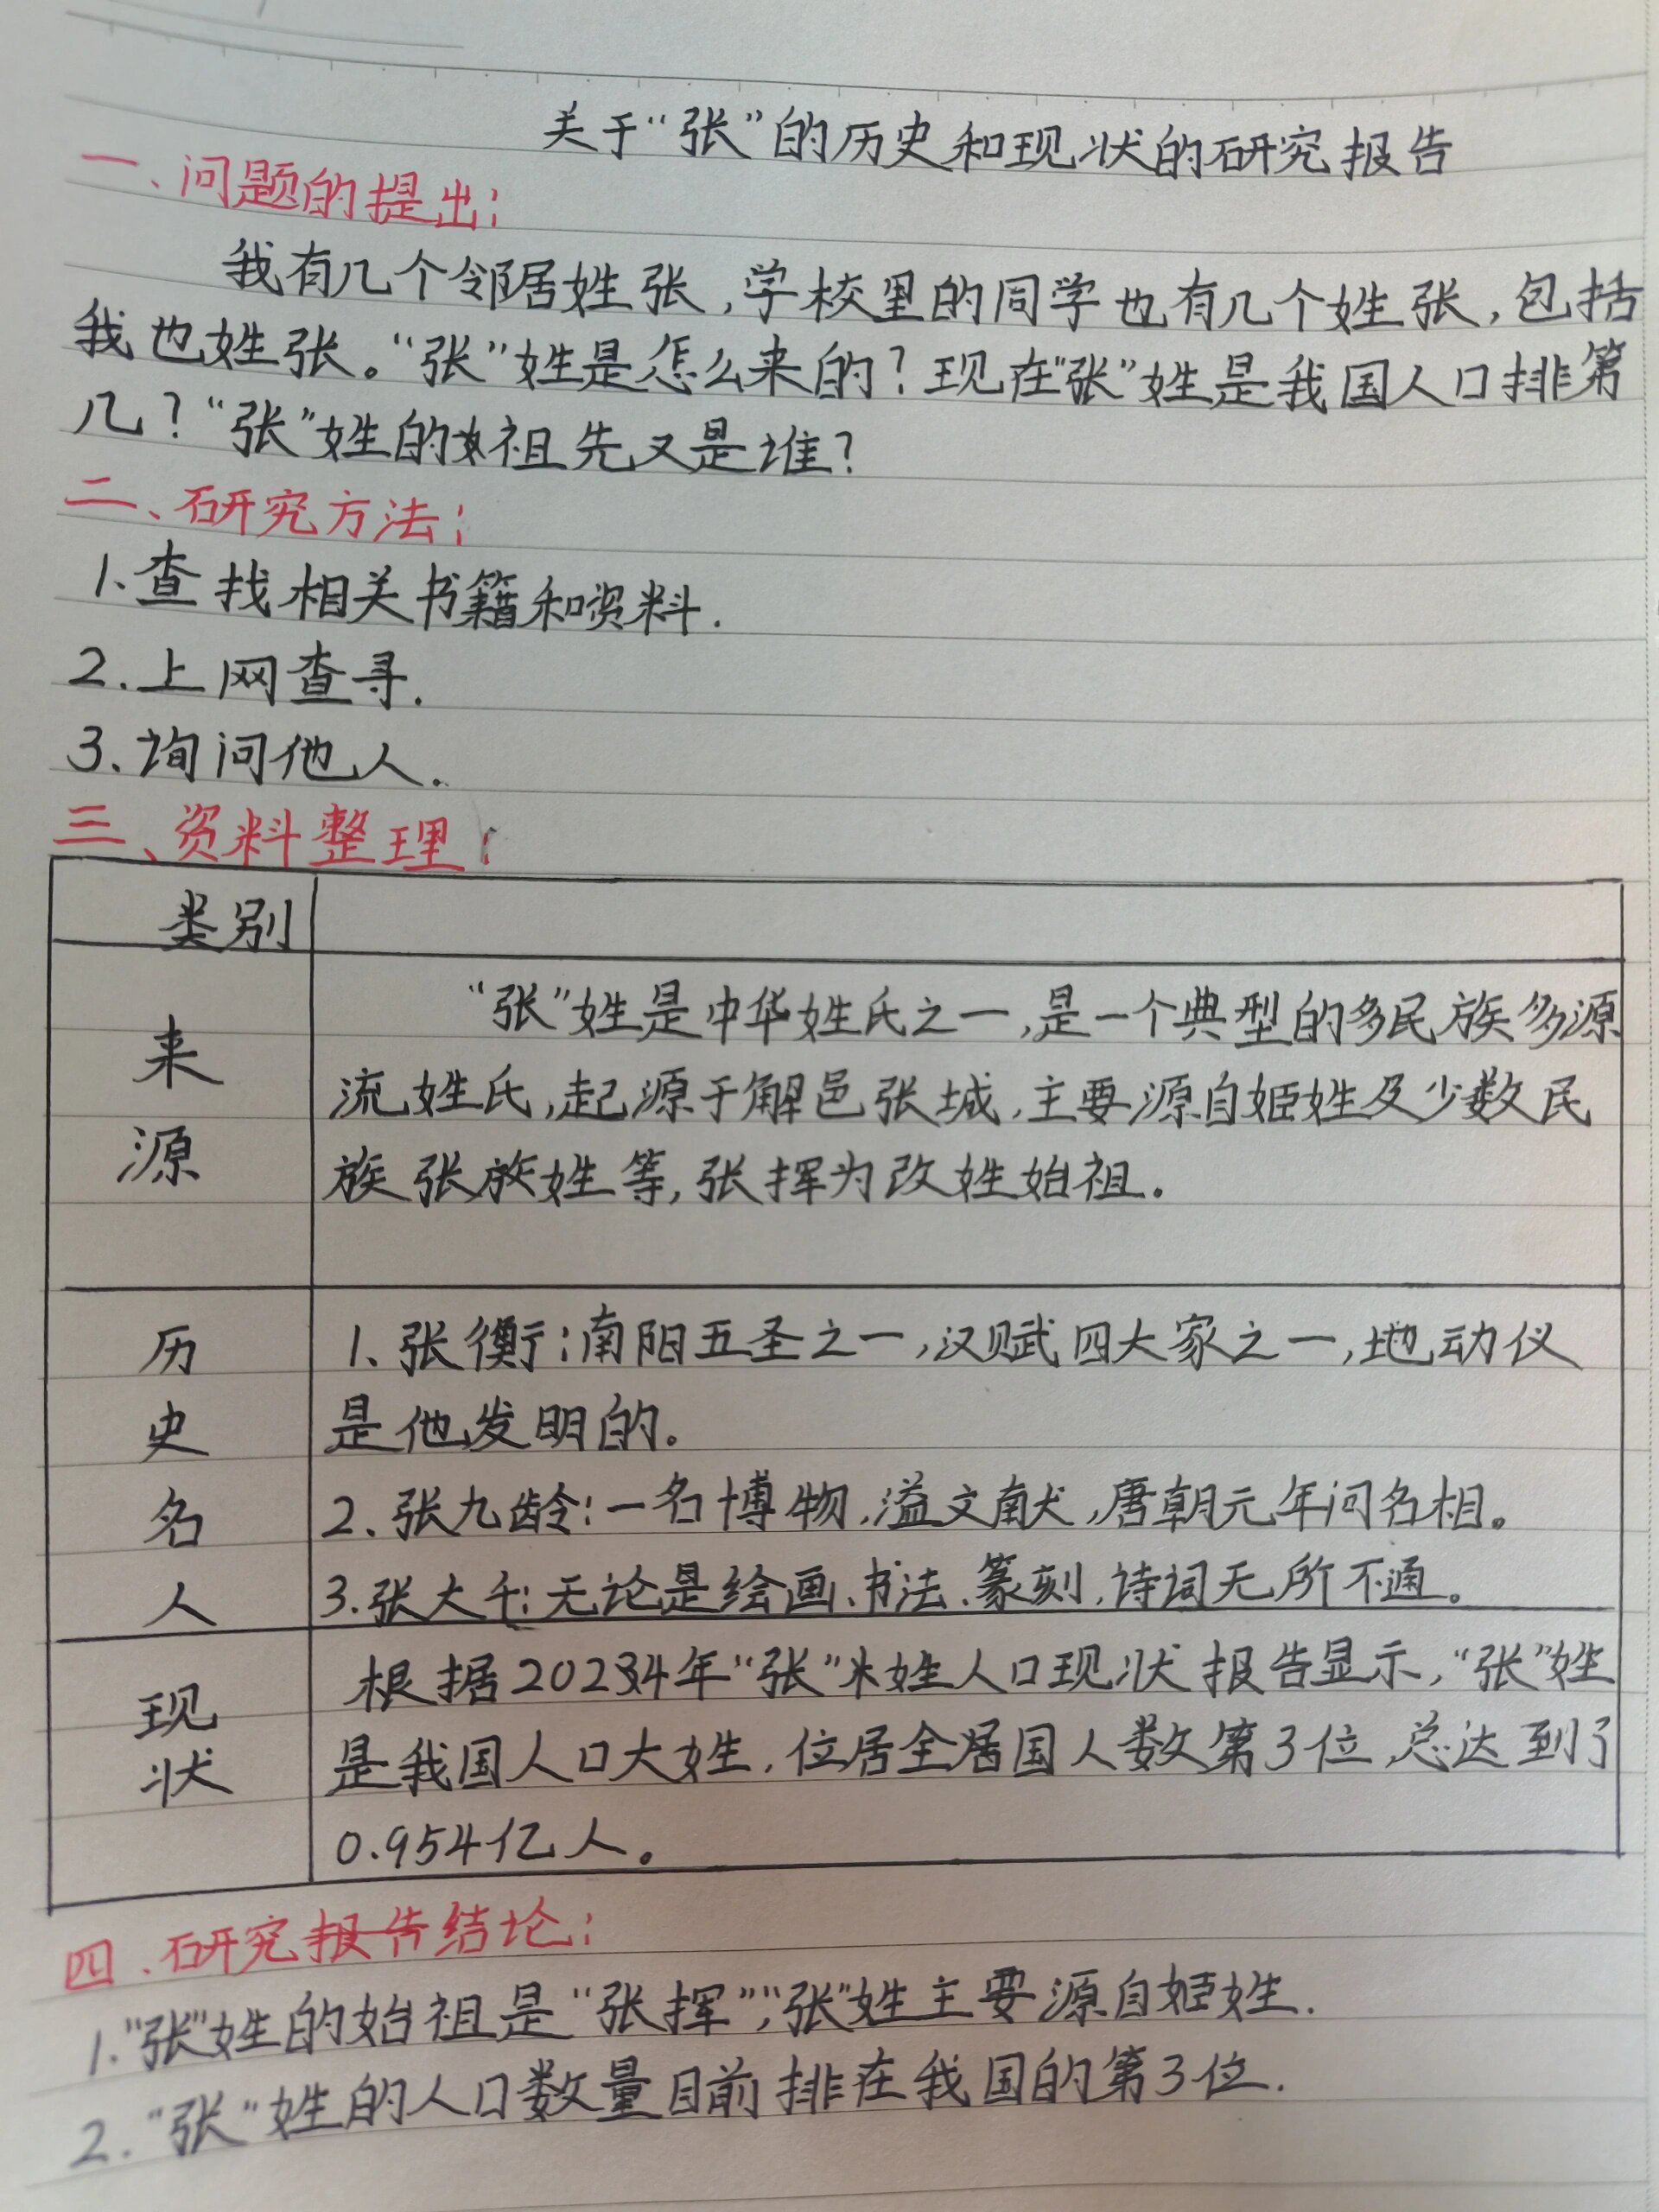 关于“张”的历史和现状的研究报告
一、问题的提出:
我有几个邻居姓张,学校里的同学也有几个姓张,包括
我也姓张。“张”姓是怎么来的?现在“张”姓是我国人口排第
几?“张”姓的祖先又是谁?
二、研究方法:
1、查找相关书籍和资料.
2.上网查寻.
3、询问他人.
三、资料整理:
类别
来源
“张”姓是中华姓氏之一,是一个典型的多民族多源
流姓氏,起源于解邑张城,主要源自姬姓及少数民
族张族姓等,张挥为改姓始祖.
历史名人
1、张衡:南阳五圣之一,汉赋四大家之一,地动仪
是他发明的.
2、张九龄:一名博物,溢文献,唐朝元年间名相。
3.张大千:无论是绘画、书法、篆刻,诗词无所不通。
现状
根据2024年“张”姓人口现状报告显示,“张”姓
是我国人口大姓,位居全国人数第3位,总达到了
0.954亿人。
四.研究报告结论:
1.“张”姓的始祖是“张挥”,“张”姓主要源自姬姓.
2.“张”姓的人口数量目前排在我国的第3位.